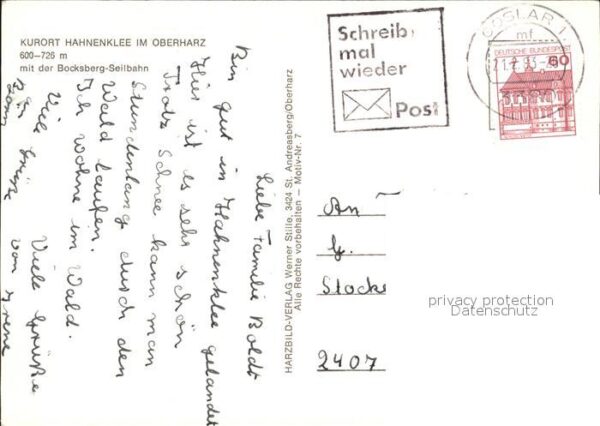 KURORT HAHNENKLEE IM OBERHARZ
600—726 m
mit der Bocksberg-Seilbahn
Liebe Familie Boldt
Bin gut in Hahnenklee gelandet
Hier ist es sehr schön
Trotz Schnee kann man
Stundenlang durch den
Wald laufen.
Ich wohne im Wald.
Viele Grüße
von Irene
Viele Grüße
HARZBILD-VERLAG Werner Stille, 3424 St. Andreasberg/Oberharz
Alle Rechte vorbehalten — Motiv-Nr. 7
Schreib
mal
wieder
Post
GOSLAR 1
mf
DEUTSCHE BUNDESPOST
60
An
F.
Stocke
2407
privacy protection
Datenschutz